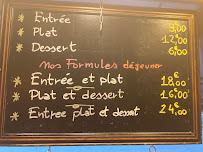 * Entrée 9,00
* Plat 12,00
* Dessert 6,00
Nos Formules déjeuner
* Entrée et plat 18,00€
* Plat et dessert 16,00€
* Entree plat et dessert 24,00€